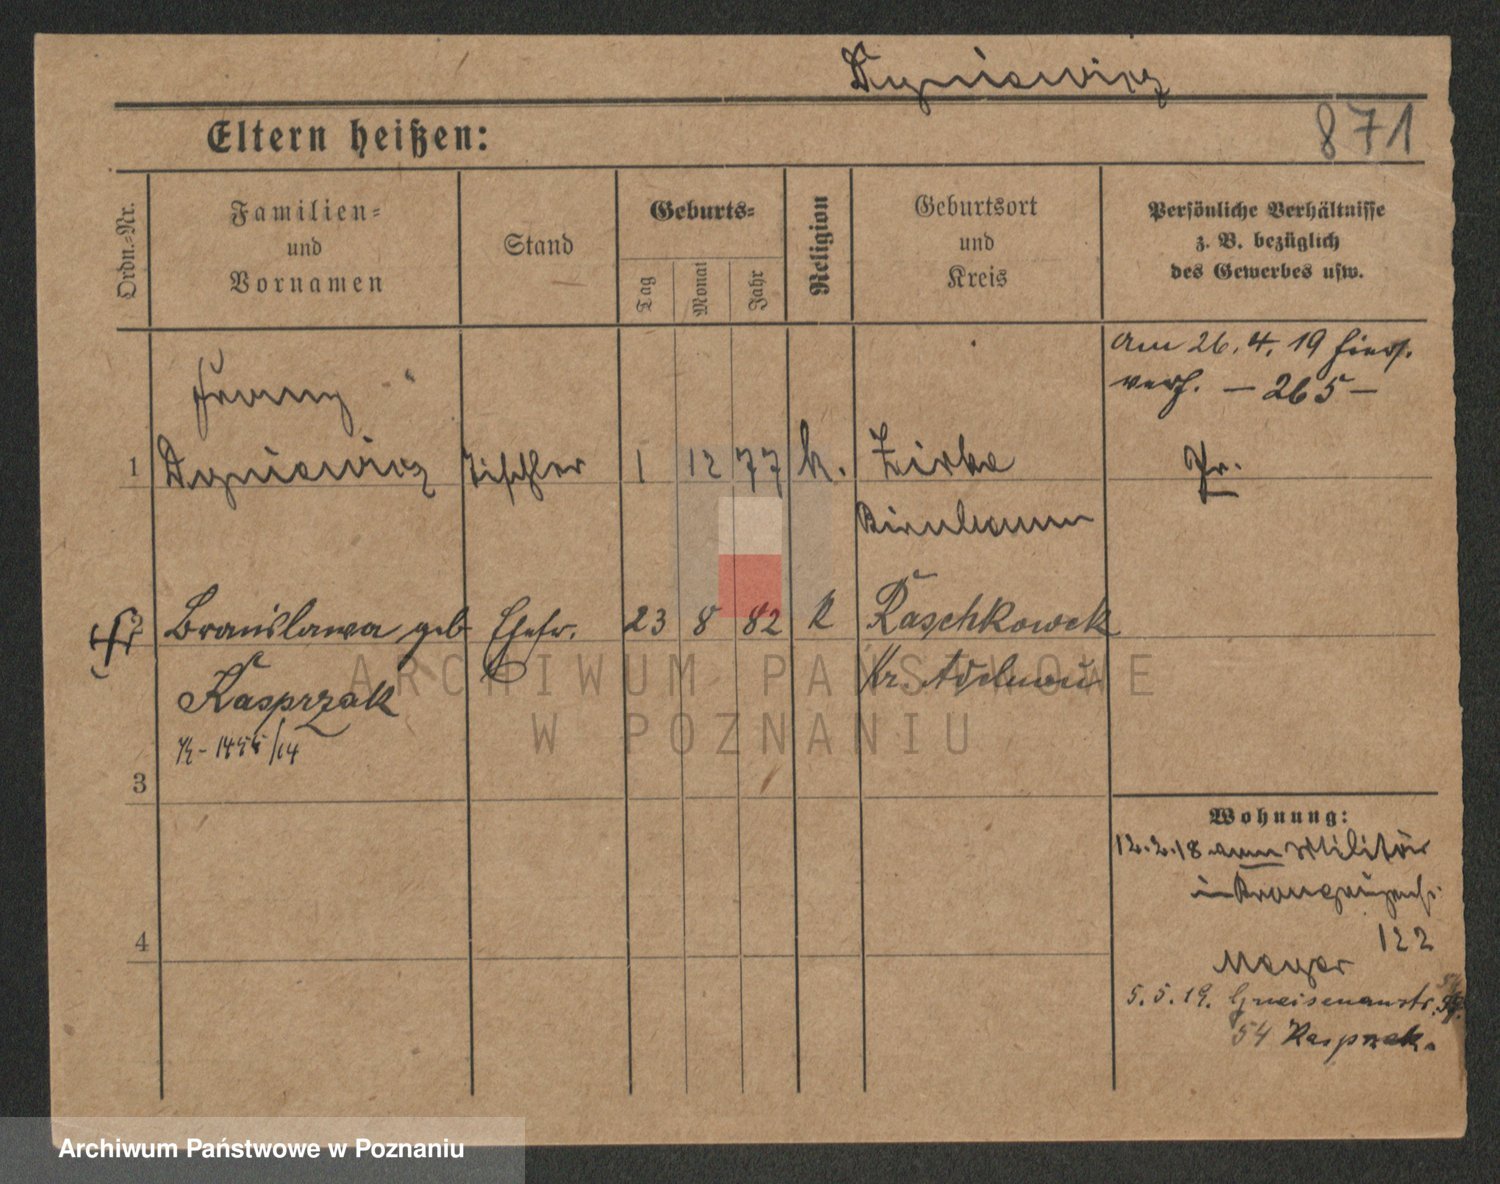 Dyniewicz
871
Eltern heißen:
Ordn.-Nr.
Familien- und Vornamen
Stand
Geburts-
Tag
Monat
Jahr
Religion
Geburtsort und Kreis
Persönliche Verhältnisse
z. B. bezüglich
des Gewerbes usw.
am 26. 4. 19 hier
verh. — 265 —
Franz
1 Dyniewicz Tischler 1 12 77 k. Zirke
Pr.
Birnbaum
2 Bronislawa geb Ehefr. 23 8 82 k Raschkowek
Kasprzak Kr. Adelnau
3
4
Wohnung:
12.2.18 zum Militär
in Kranzprinzenstr.
122
Meyer
5. 5. 19. Gneisenaustr.
54 Kasprzak.
ARCHIWUM PAŃSTWOWE
W POZNANIU
Archiwum Państwowe w Poznaniu